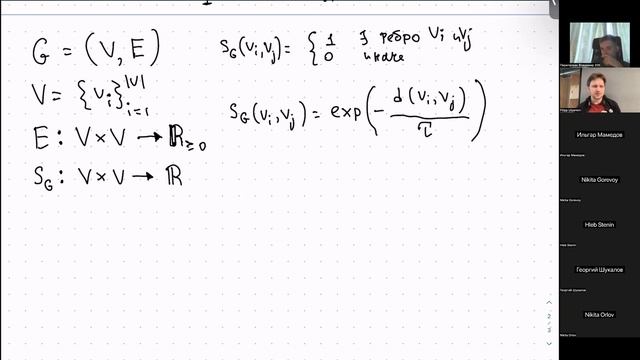 G = (V, E)
V = {v_i}_{i=1}^{|V|}
E : V × V → ℝ_{≥0}
S_G : V × V → ℝ
S_G(v_i, v_j) = { 1 ∃ ребро v_i и v_j
0 иначе
S_G(v_i, v_j) = exp(− d(v_i, v_j) / τ)
Ильгар Мамедов
Ильгар Мамедов
Nikita Gorevoy
Nikita Gorevoy
Hleb Stenin
Hleb Stenin
Георгий Шукалов
Георгий Шукалов
Nikita Orlov
Nikita Orlov
2
3